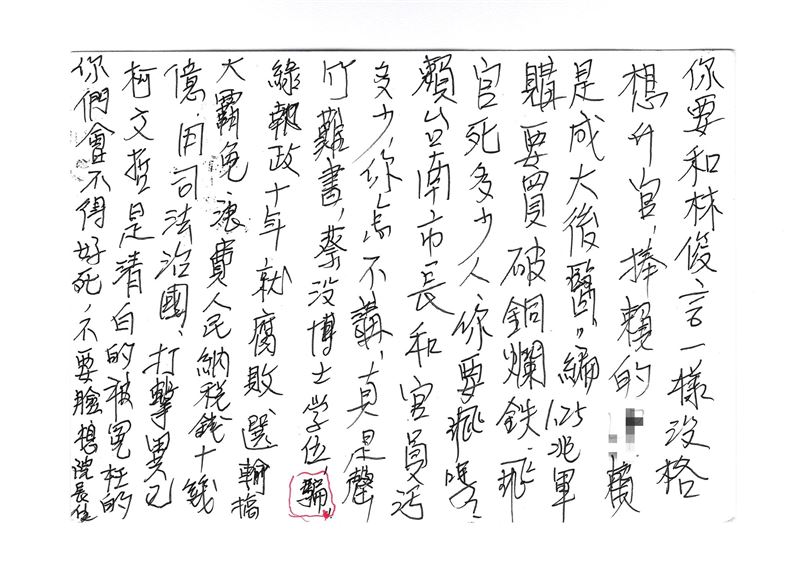 你要和林俊言一樣沒格
想升官，捧賴的 賴
是成大後醫，編1.25兆軍
購要買破銅爛鐵、飛
官死多少人、你要飛嗎？
賴台南市長和官員污
多少，你怎不講，真是罄
竹難書，蔡沒博士学位，騙，
綠執政十年就腐敗選輸搞
大霸免浪費人民納稅錢十幾
億，用司法治國、打擊異己
柯文哲是清白的被冤枉的
你們會不得好死，不要臉想院長位